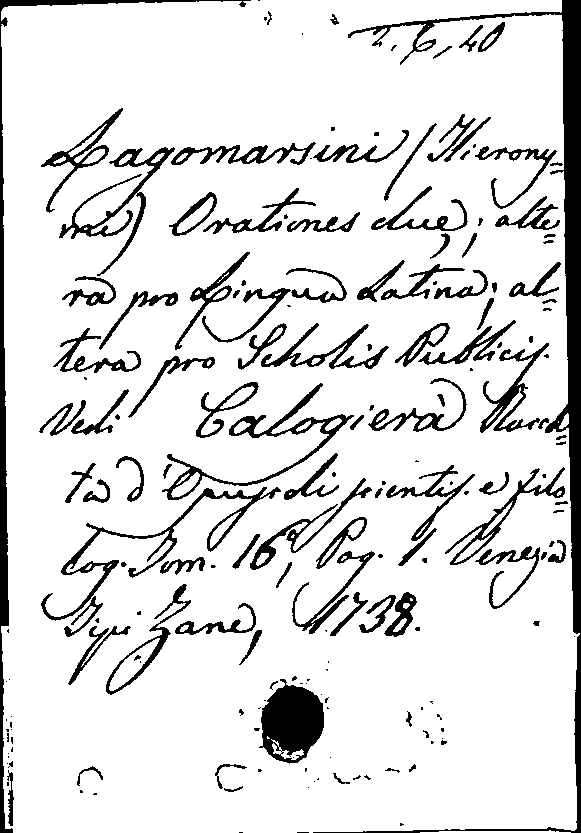 2. 6, 40
Lagomarsini (Hierony=
mi) Orationes duę; alte=
ra pro Lingua Latina; al=
tera pro Scholis Publicis.
Vedi Calogierà Raccol=
ta d'Opuscoli scientif. e filo=
log. Tom. 16º, Pag. 1. Venezia
Tipi Zane, 1738.